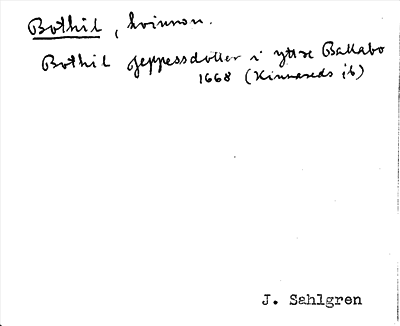 Bothil, kvinnon.
Bothil Jeppessdotter i yttre Ballabo
1668 (Kinnareds jb)
J. Sahlgren